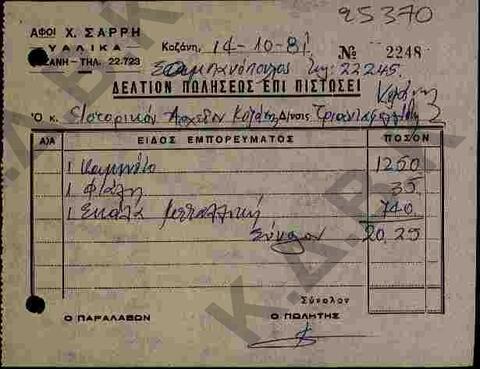 95370
ΑΦΟΙ Χ. ΣΑΡΡΗ
ΥΑΛΙΚΑ
ΚΟΖΑΝΗ - ΤΗΛ. 22.723
Κοζάνη, 14-10-81
№ 2248
22245
ΔΕΛΤΙΟΝ ΠΩΛΗΣΕΩΣ ΕΠΙ ΠΙΣΤΩΣΕΙ
Ὁ κ. Ειστορικόν Αρχείον Κοζάνης Δ/νσις
Α/Α ΕΙΔΟΣ ΕΜΠΟΡΕΥΜΑΤΟΣ ΠΟΣΟΝ
1 1250
1 Φιάλη 35
1 Σκάλα μεταλλική 740
Σύνολον 2025
Σύνολον
Ο ΠΑΡΑΛΑΒΩΝ Ο ΠΩΛΗΤΗΣ
Κ.Δ.Β.Κ